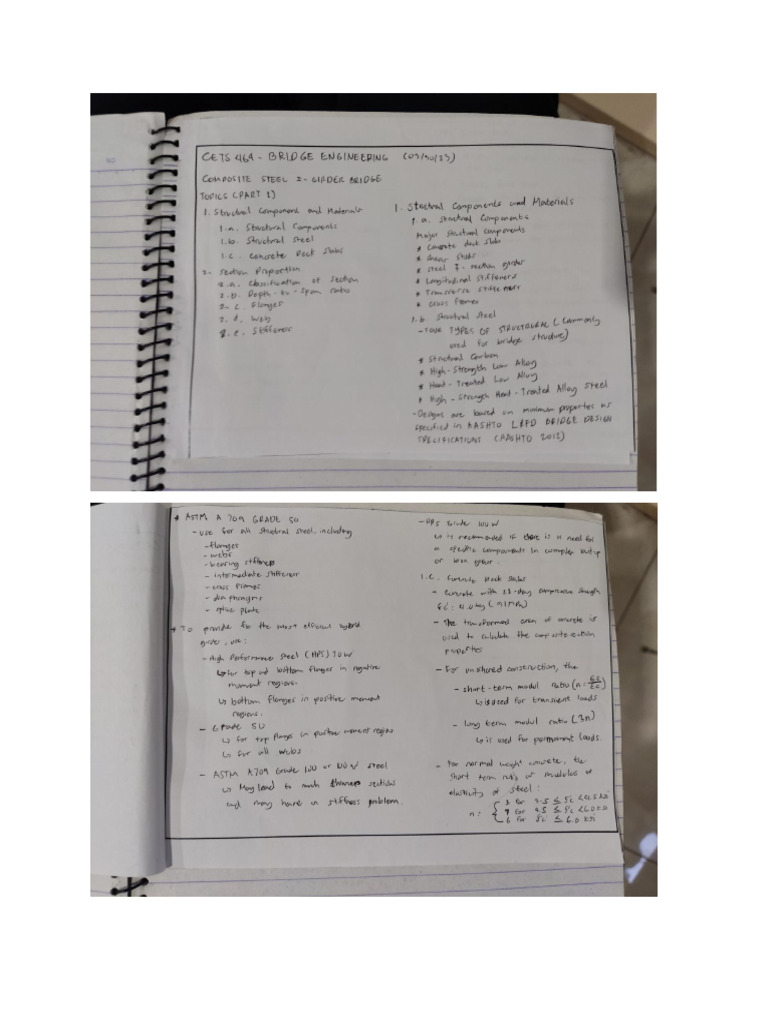 CETS 464 - BRIDGE ENGINEERING
COMPOSITE STEEL I - GIRDER BRIDGE
TOPICS (PART 1)
1. Structural Component and Materials
1.a. Structural Components
1.b. Structural Steel
1.c. Concrete Deck Slabs
2. Section Proportion
2.a. Classification of Section
2.b. Depth-to-Span ratio
2.c. Flanges
2.d. Web
2.e. Stiffener
1. Structural Components and Materials
1.a. Structural Components
Major Structural components
* Concrete deck slabs
* Shear Studs
* Steel I-section girder
* Longitudinal Stiffeners
* Transverse Stiffeners
* Cross Frames
1.b. Structural Steel
- FOUR TYPES OF STRUCTURAL (Commonly
used for bridge structure)
* Structural Carbon
* High-Strength Low Alloy
* Heat-Treated Low Alloy
* High-Strength Heat-Treated Alloy Steel
- Designs are based on minimum properties as
specified in AASHTO LRFD BRIDGE DESIGN
SPECIFICATIONS (AASHTO 2012)
* ASTM A 709 GRADE 50
- use for all structural steel, including
- flanges
- webs
- bearing stiffeners
- intermediate stiffener
- cross frames
- diaphragms
- splice plate
* To provide for the most efficient hybrid
girder, use:
- High Performance Steel (HPS) 70W
↳ for top and bottom flanges in negative
moment regions.
↳ bottom flanges in positive moment
regions.
- Grade 50
↳ for top flanges in positive moment regions
↳ for all webs
- ASTM A709 Grade 100 or 100W steel
↳ May lead to much thinner sections
and may have a stiffness problem.
- HPS Grade 100W
↳ is recommended if there is a need for
a specific components in complex
or
1.c. Concrete Deck Slabs
- Concrete with 28-day compressive strength
f'c = 4.0 ksi
- The transformed area of concrete is
used to calculate the composite section
properties
- For unshored construction, the
- short-term modul ratio (n = Es/Ec)
↳ is used for transient loads
- long term modul ratio (3n)
↳ is used for permanent loads.
- For normal weight concrete, the
short term ratio of modulus of
elasticity of steel:
n = { 8 for 3.5 ≤ f'c < 4.5 ksi
7 for 4.5 ≤ f'c < 6.0 ksi
6 for f'c ≤ 6.0 ksi